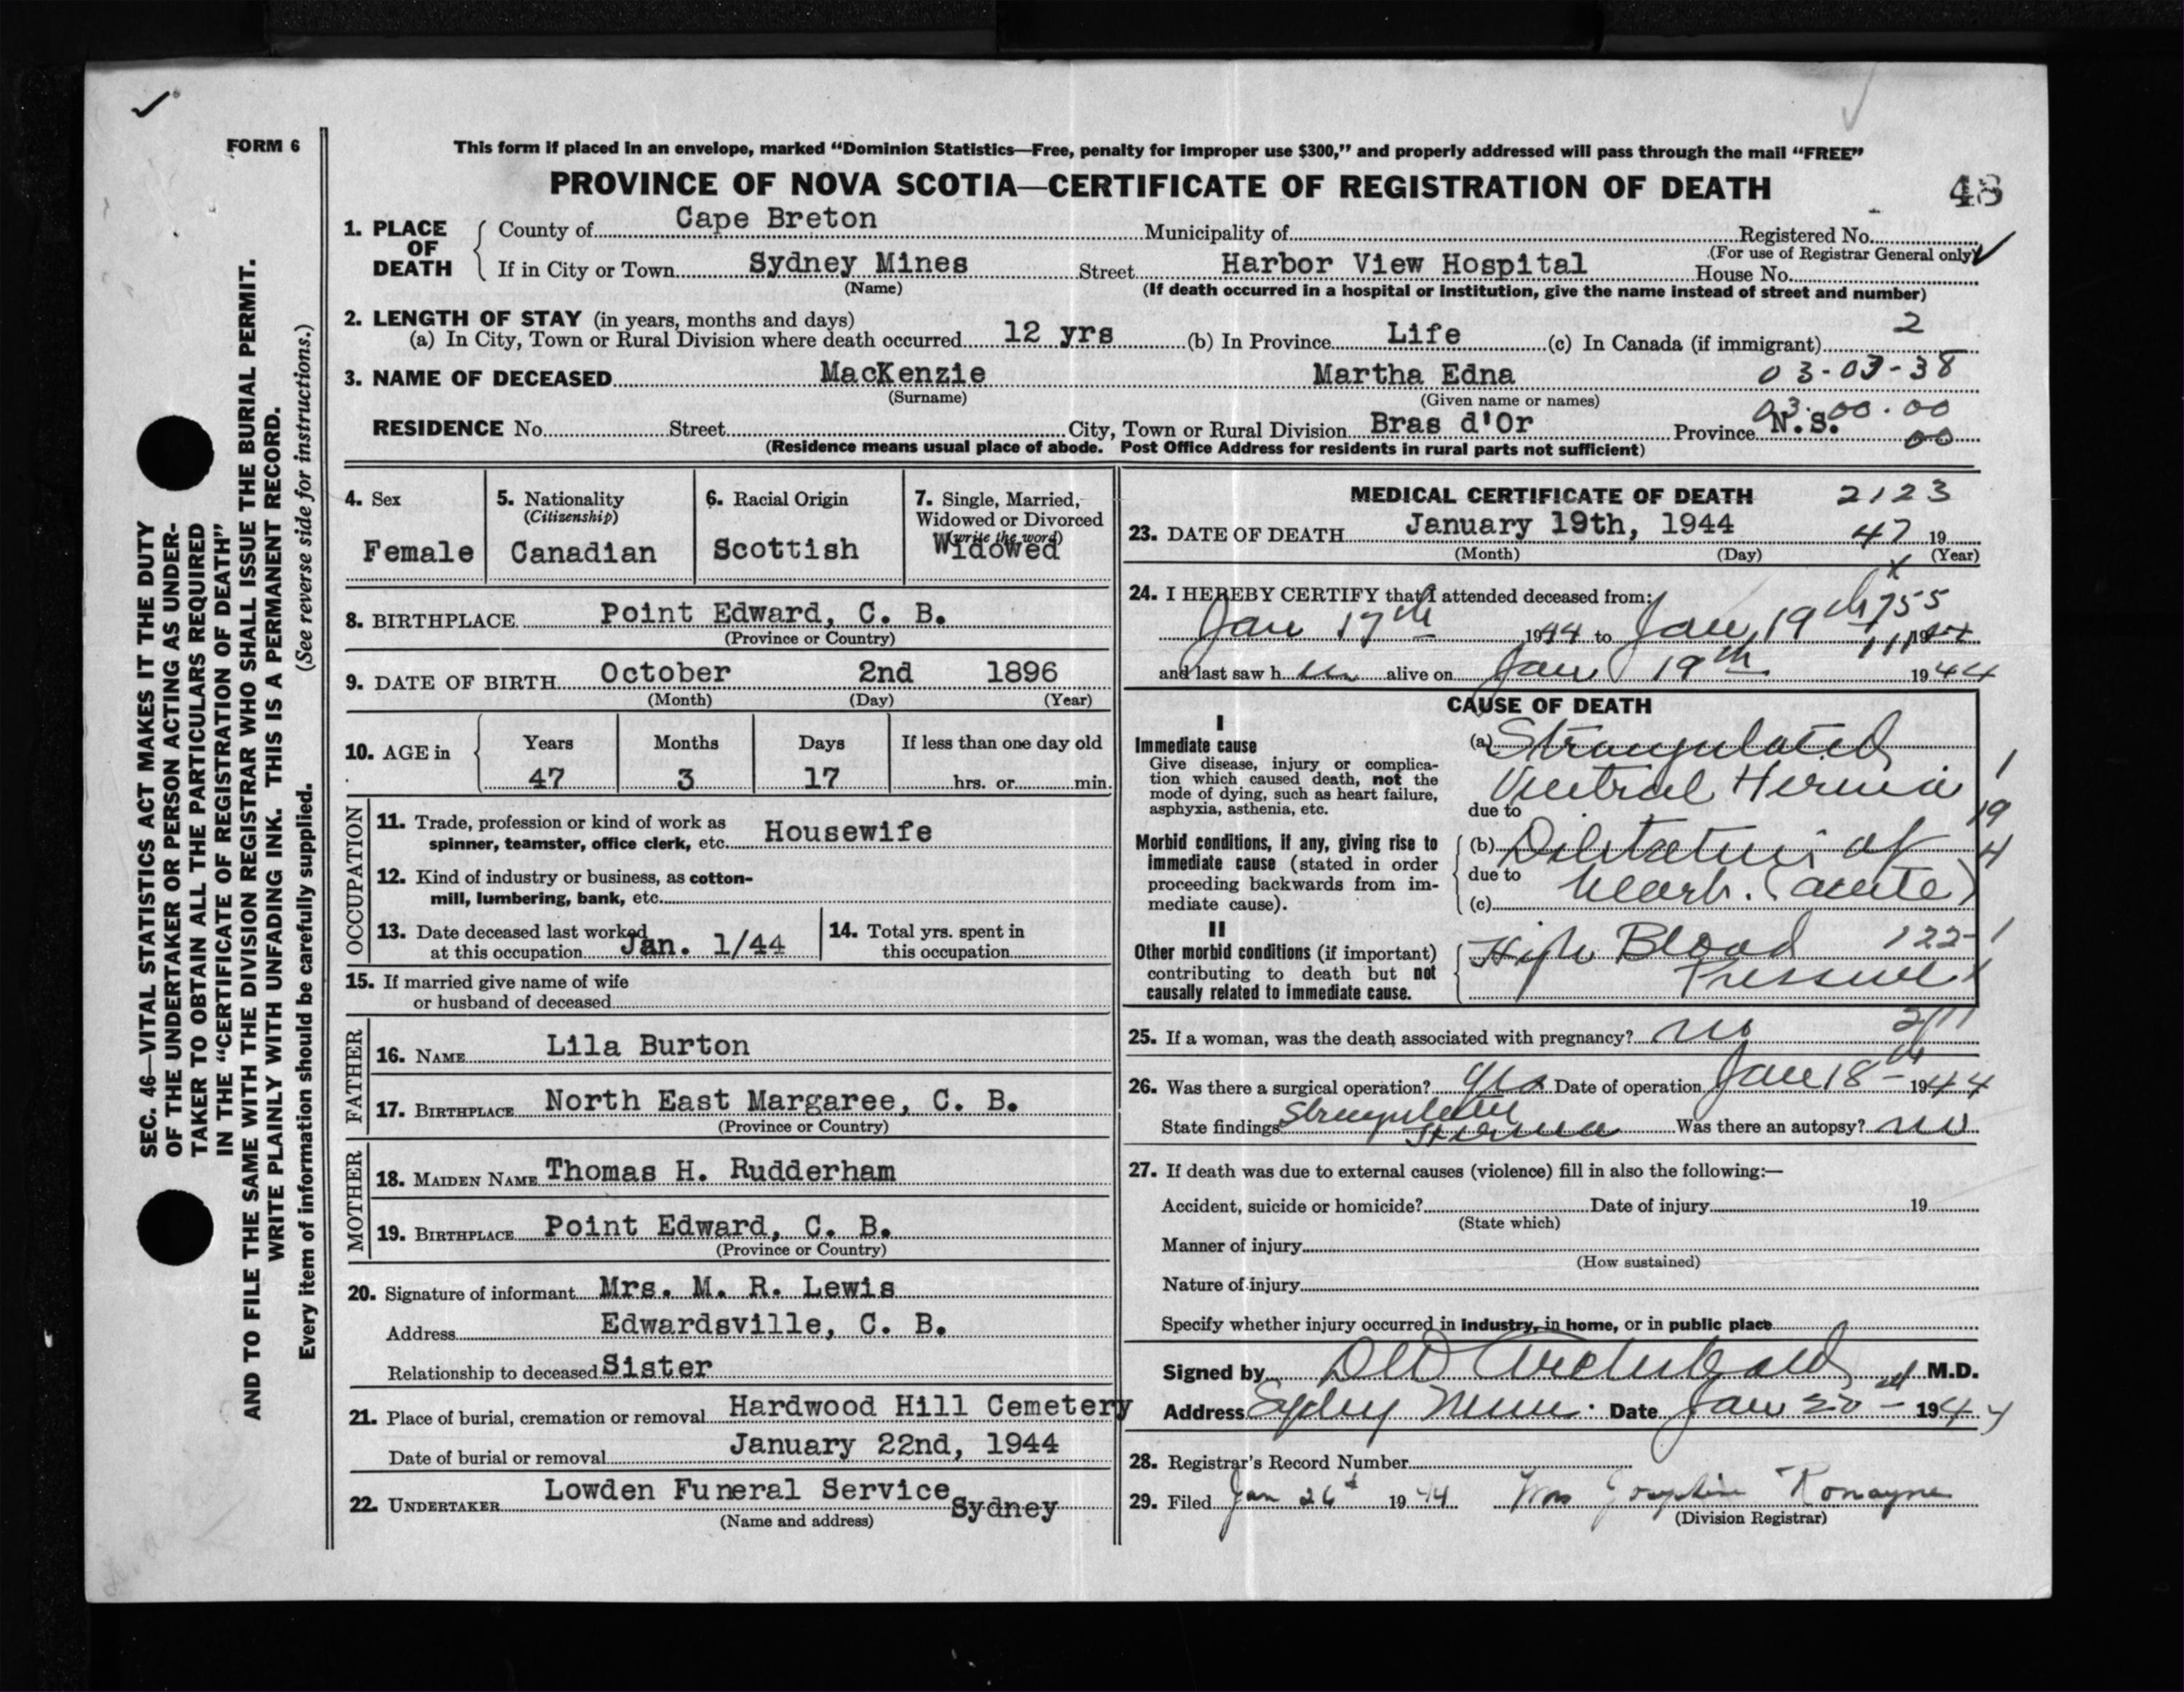 FORM 6
This form if placed in an envelope, marked “Dominion Statistics—Free, penalty for improper use $300,” and properly addressed will pass through the mail “FREE”
PROVINCE OF NOVA SCOTIA—CERTIFICATE OF REGISTRATION OF DEATH
48
1. PLACE OF DEATH
County of Cape Breton Municipality of Registered No.
(For use of Registrar General only)
If in City or Town Sydney Mines Street Harbor View Hospital House No.
(Name) (If death occurred in a hospital or institution, give the name instead of street and number)
2. LENGTH OF STAY (in years, months and days)
(a) In City, Town or Rural Division where death occurred 12 yrs (b) In Province Life (c) In Canada (if immigrant) 2
3. NAME OF DECEASED MacKenzie Martha Edna 03-03-38
(Surname) (Given name or names)
03.00.00
RESIDENCE No. Street City, Town or Rural Division Bras d'Or Province N.S. 00
(Residence means usual place of abode. Post Office Address for residents in rural parts not sufficient)
4. Sex
Female
5. Nationality
(Citizenship)
Canadian
6. Racial Origin
Scottish
7. Single, Married,
Widowed or Divorced
(write the word)
Widowed
8. BIRTHPLACE Point Edward, C. B.
(Province or Country)
9. DATE OF BIRTH October 2nd 1896
(Month) (Day) (Year)
10. AGE in Years Months Days If less than one day old
47 3 17 hrs. or min.
OCCUPATION
11. Trade, profession or kind of work as
spinner, teamster, office clerk, etc. Housewife
12. Kind of industry or business, as cotton-
mill, lumbering, bank, etc.
13. Date deceased last worked
at this occupation Jan. 1/44
14. Total yrs. spent in
this occupation
15. If married give name of wife
or husband of deceased
FATHER
16. NAME Lila Burton
17. BIRTHPLACE North East Margaree, C. B.
(Province or Country)
MOTHER
18. MAIDEN NAME Thomas H. Rudderham
19. BIRTHPLACE Point Edward, C. B.
(Province or Country)
20. Signature of informant Mrs. M. R. Lewis
Address Edwardsville, C. B.
Relationship to deceased Sister
21. Place of burial, cremation or removal Hardwood Hill Cemetery
Date of burial or removal January 22nd, 1944
22. UNDERTAKER Lowden Funeral Service Sydney
(Name and address)
MEDICAL CERTIFICATE OF DEATH 2123
23. DATE OF DEATH January 19th, 1944 47 19
(Month) (Day) (Year)
24. I HEREBY CERTIFY that I attended deceased from:
755
Jan 17th 1944 to Jan 19th 19
and last saw h alive on Jan 19th 1944
CAUSE OF DEATH
I
Immediate cause
Give disease, injury or complica-
tion which caused death, not the
mode of dying, such as heart failure,
asphyxia, asthenia, etc.
(a) Strangulated
Ventral Hernia
due to
Morbid conditions, if any, giving rise to
immediate cause (stated in order
proceeding backwards from im-
mediate cause).
(b) Dilitation of
due to Heart. (acute)
(c)
II
Other morbid conditions (if important)
contributing to death but not
causally related to immediate cause.
High Blood 122
Pressure
1
19
4
25. If a woman, was the death associated with pregnancy? no
26. Was there a surgical operation? Yes Date of operation Jan 18th 1944
State findings Hernia Was there an autopsy? no
27. If death was due to external causes (violence) fill in also the following:—
Accident, suicide or homicide? Date of injury 19
(State which)
Manner of injury
(How sustained)
Nature of injury
Specify whether injury occurred in industry, in home, or in public place
Signed by Archibald M.D.
Address Sydney Mines. Date Jan 20 1944
28. Registrar's Record Number
29. Filed Jan 26 1944 Mrs Josephine Ronayne
(Division Registrar)
SEC. 46—VITAL STATISTICS ACT MAKES IT THE DUTY
OF THE UNDERTAKER OR PERSON ACTING AS UNDER-
TAKER TO OBTAIN ALL THE PARTICULARS REQUIRED
IN THE “CERTIFICATE OF REGISTRATION OF DEATH”
AND TO FILE THE SAME WITH THE DIVISION REGISTRAR WHO SHALL ISSUE THE BURIAL PERMIT.
WRITE PLAINLY WITH UNFADING INK. THIS IS A PERMANENT RECORD.
Every item of information should be carefully supplied. (See reverse side for instructions.)